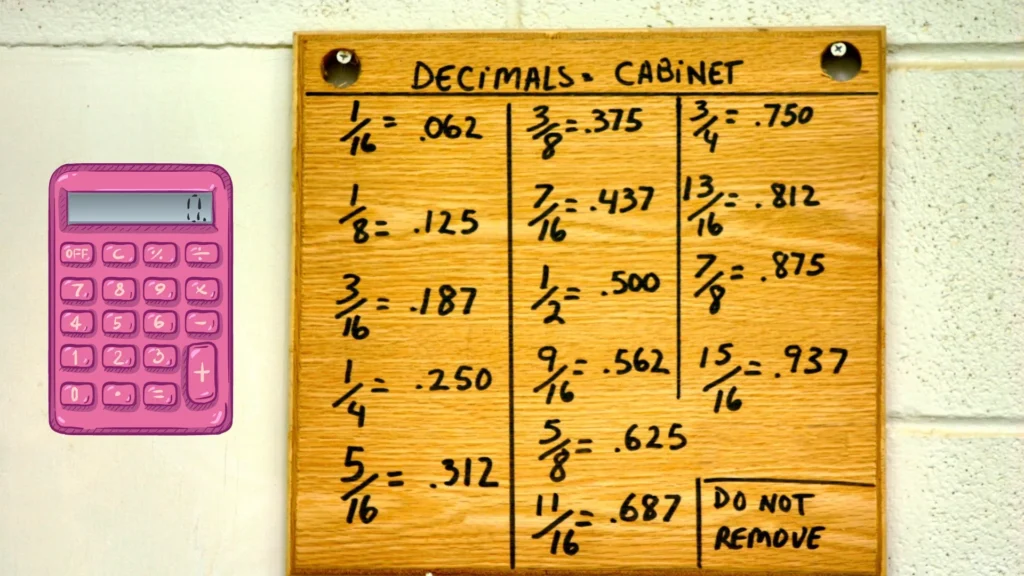 DECIMALS. CABINET
1/16 = .062
1/8 = .125
3/16 = .187
1/4 = .250
5/16 = .312
3/8 = .375
7/16 = .437
1/2 = .500
9/16 = .562
5/8 = .625
11/16 = .687
3/4 = .750
13/16 = .812
7/8 = .875
15/16 = .937
DO NOT
REMOVE
0.
OFF C % ÷
7 8 9 ×
4 5 6 −
1 2 3 +
0 . =